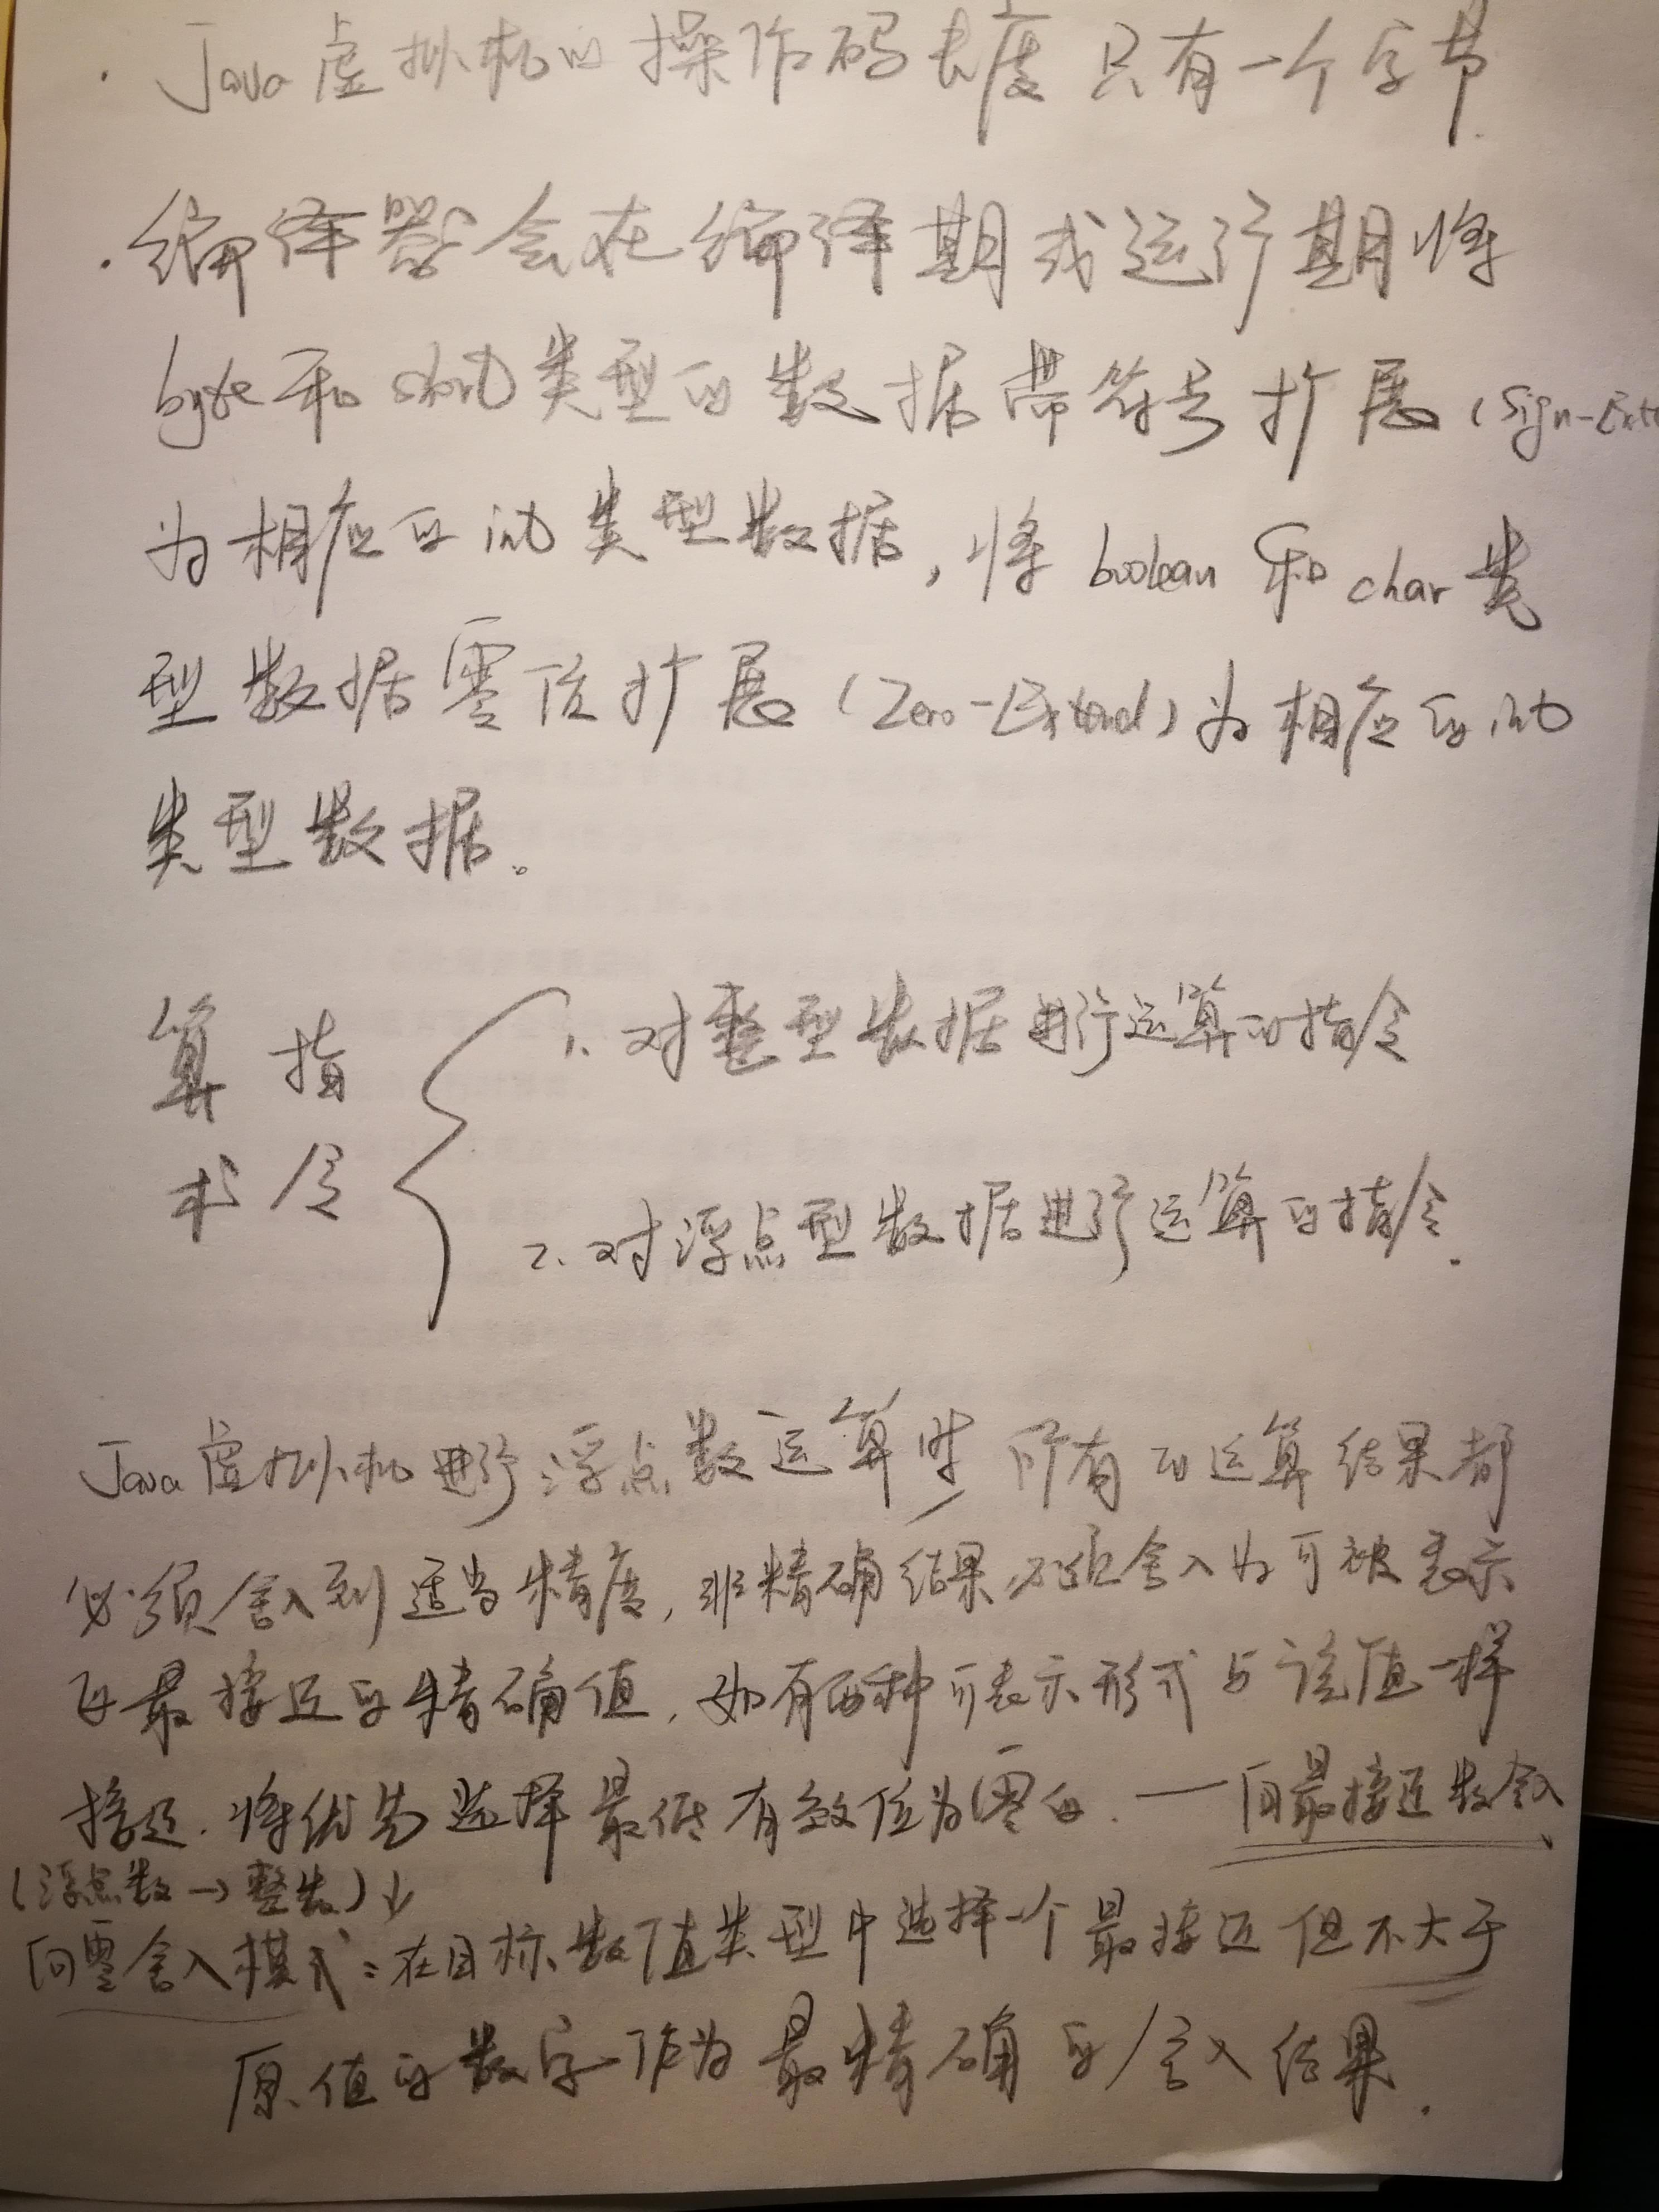 · Java虚拟机的操作码长度只有一个字节.
· 编译器会在编译期或运行期将
byte和short类型的数据带符号扩展(Sign-Exte
为相应的int类型数据,将boolean和char类
型数据零位扩展(Zero-Extend)为相应的int
类型数据。
算术指令
1、对整型数据进行运算的指令
2、对浮点型数据进行运算的指令.
Java虚拟机进行浮点数运算时 所有的运算结果都
必须舍入到适当精度,非精确结果必须舍入为可被表示
的最接近的精确值,如有两种可表示形式与该值一样
接近.将优先选择最低有效位为零的.—向最接近数舍入
(浮点数→整数)↓
向零舍入模式:在目标数值类型中选择一个最接近但不大于
原值的数字作为最精确的舍入结果.